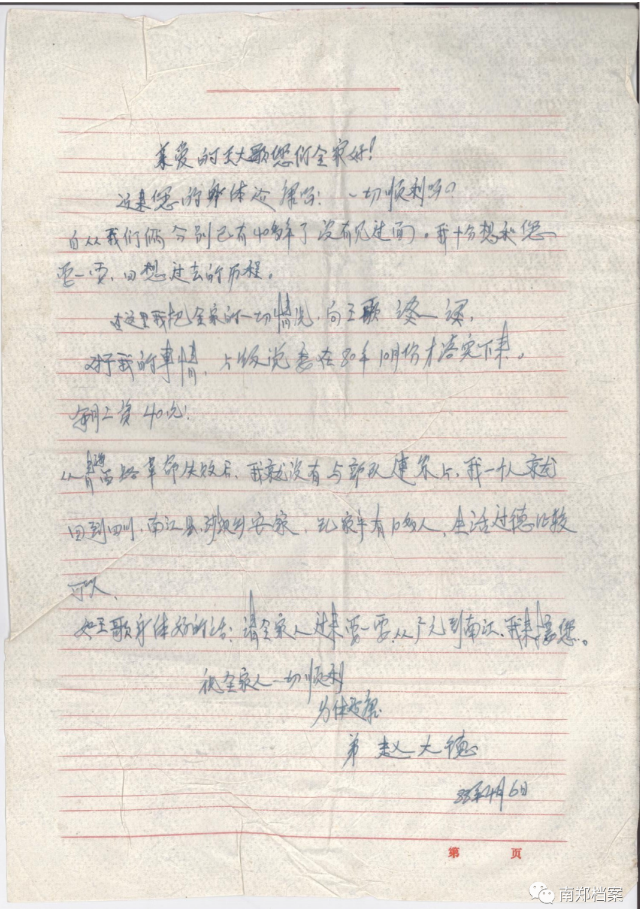 亲爱的王大歌您们全家好!
近来您的身体：一切顺利吗?
自从我们俩分别已有40多年了没有见过面。我十分想和您
一，回想过去的历程。
在这里我把全家的一切情况，向王歌谈一谈，
对于我的事情，上级说是在80年10月份才落实下来。
每月工资40元!
从西路革命失败后，我就没有与部队连系上，我一个人就
回到四川，南江县安家，现家中有10多人，生活过德比较
可以，
如王歌身体好的话：请全家人过来，从广元到南江，我来接您。
祝全家人一切顺利
身体健康
弟 赵大德
年4月6日
第 页
南郑档案